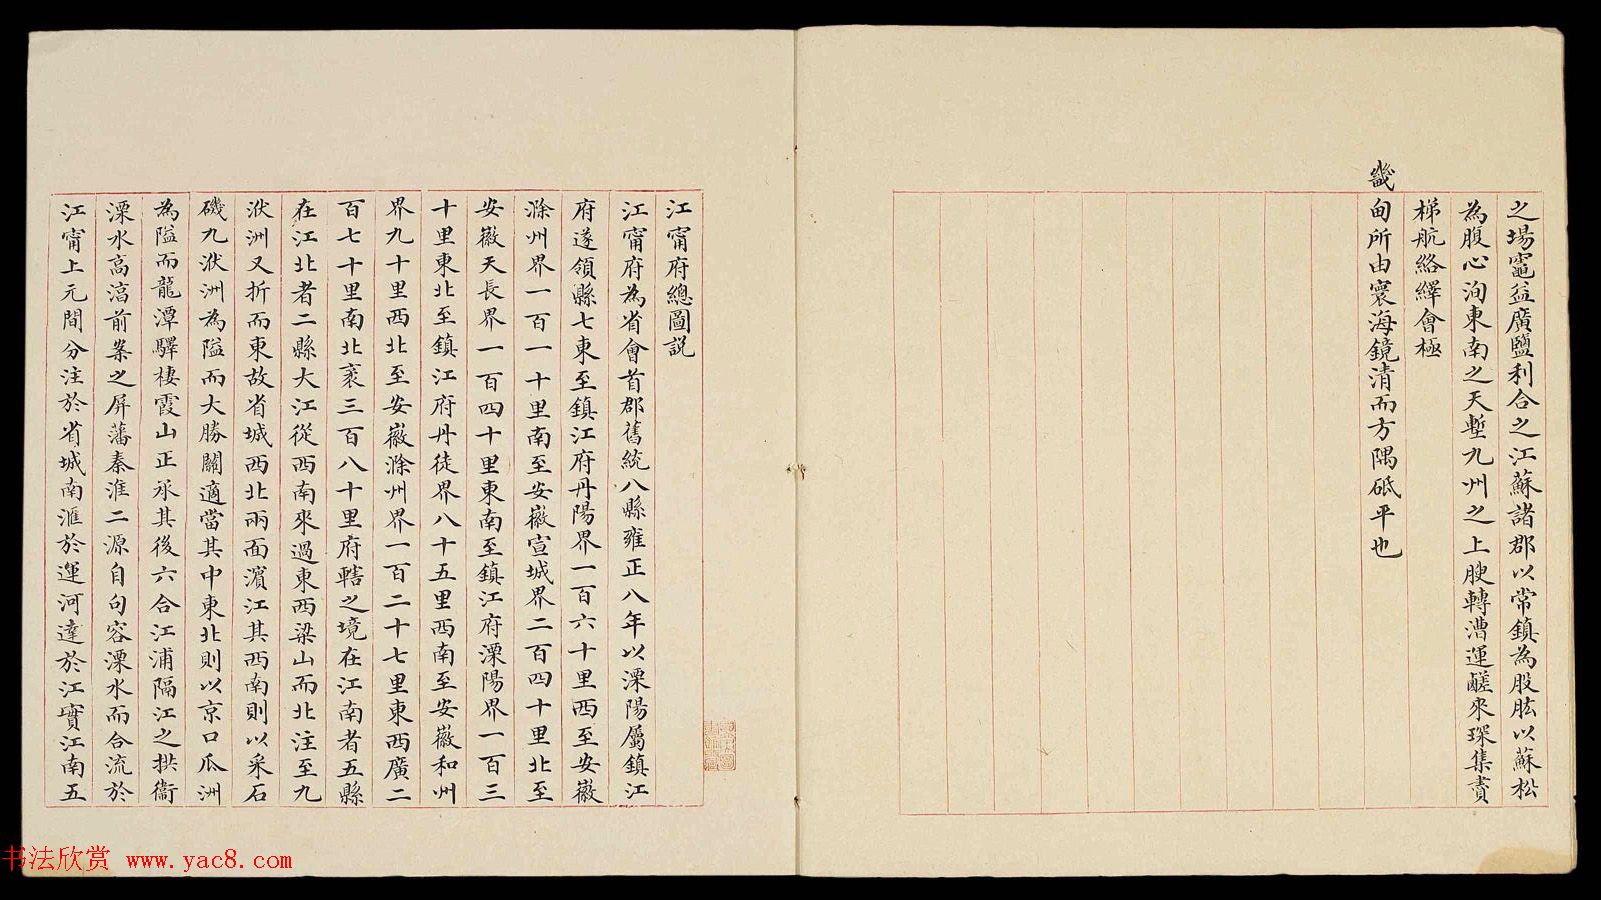 之場竈益廣鹽利合之江蘇諸郡以常鎮為股肱以蘇松
為腹心洵東南之天塹九州之上腴轉漕運鹾來琛集賮
梯航絡繹會極
畿甸所由寰海鏡清而方隅砥平也
江甯府總圖説
江甯府為省會首郡舊統八縣雍正八年以溧陽屬鎮江
府遂領縣七東至鎮江府丹陽界一百六十里西至安徽
滁州界一百一十里南至安徽宣城界二百四十里北至
安徽天長界一百四十里東南至鎮江府溧陽界一百三
十里東北至鎮江府丹徒界八十五里西南至安徽和州
界九十里西北至安徽滁州界一百二十七里東西廣二
百七十里南北袤三百八十里府轄之境在江南者五縣
在江北者二縣大江從西南來過東西梁山而北注至九
洑洲又折而東故省城西北兩面濱江其西南則以采石
磯九洑洲為隘而大勝關適當其中東北則以京口瓜洲
為隘而龍潭驛棲霞山正承其後六合江浦隔江之拱衞
溧水高湻前案之屏藩秦淮二源自句容溧水而合流於
江甯上元間分注於省城南滙於運河達於江實江南五
书法欣赏 www.yac8.com